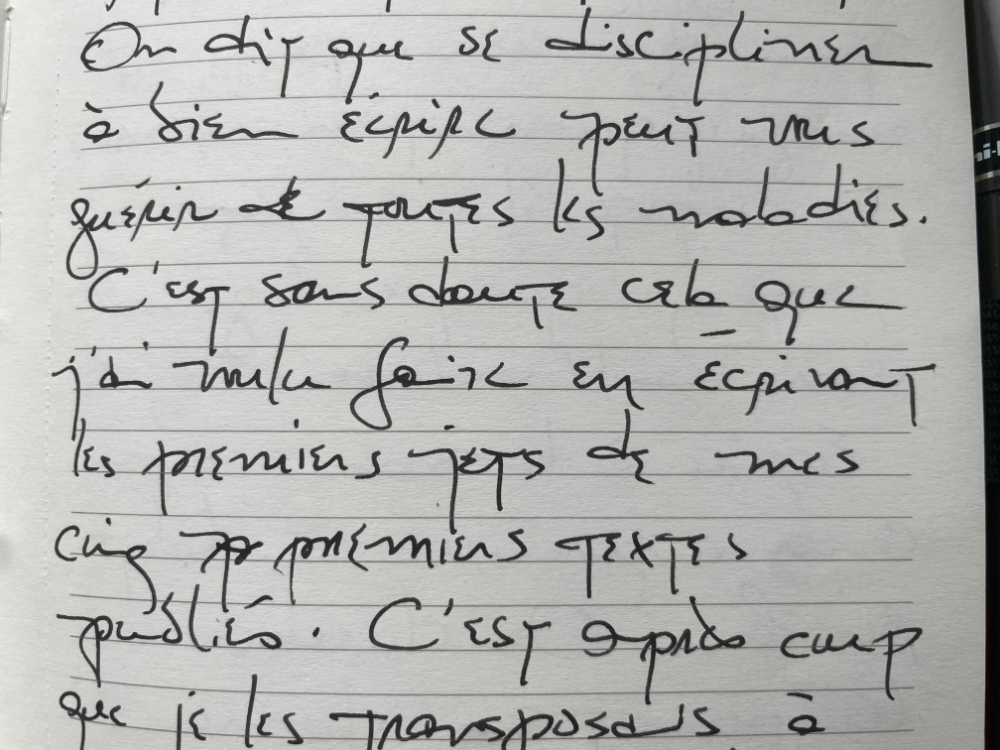 On dit que se discipliner
à bien écrire peut vous
guérir de toutes les maladies.
C'est sans doute cela que
j'ai voulu faire en écrivant
les premiers jets de mes
cinq premiers textes
publiés. C'est après coup
que je les transposais à